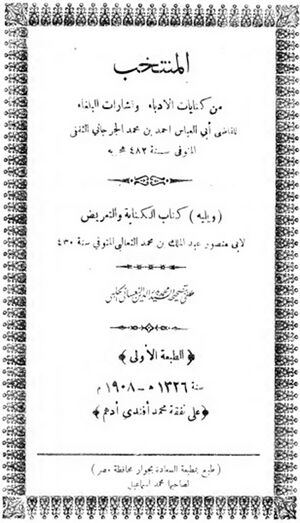 المنتخب
من كنايات الادباء واشارات البلغاء
للقاضي أبي العباس احمد بن محمد الجرجاني الثقفي
المتوفى سنة ٤٨٢ هجرية
(ويليه) كتاب الكناية والتعريض
لابي منصور عبد الملك بن محمد الثعالبي المتوفي سنة ٤٣٠
عنى بتصحيحه السيد محمد بدر الدين النعساني الحلبي
﴿الطبعة الأولى﴾
سنة ١٣٢٦ ه – ١٩٠٨ م
﴿على نفقة محمد أفندي أدهم﴾
(طبع بمطبعة السعادة بجوار محافظة مصر)
لصاحبها محمد اسماعيل